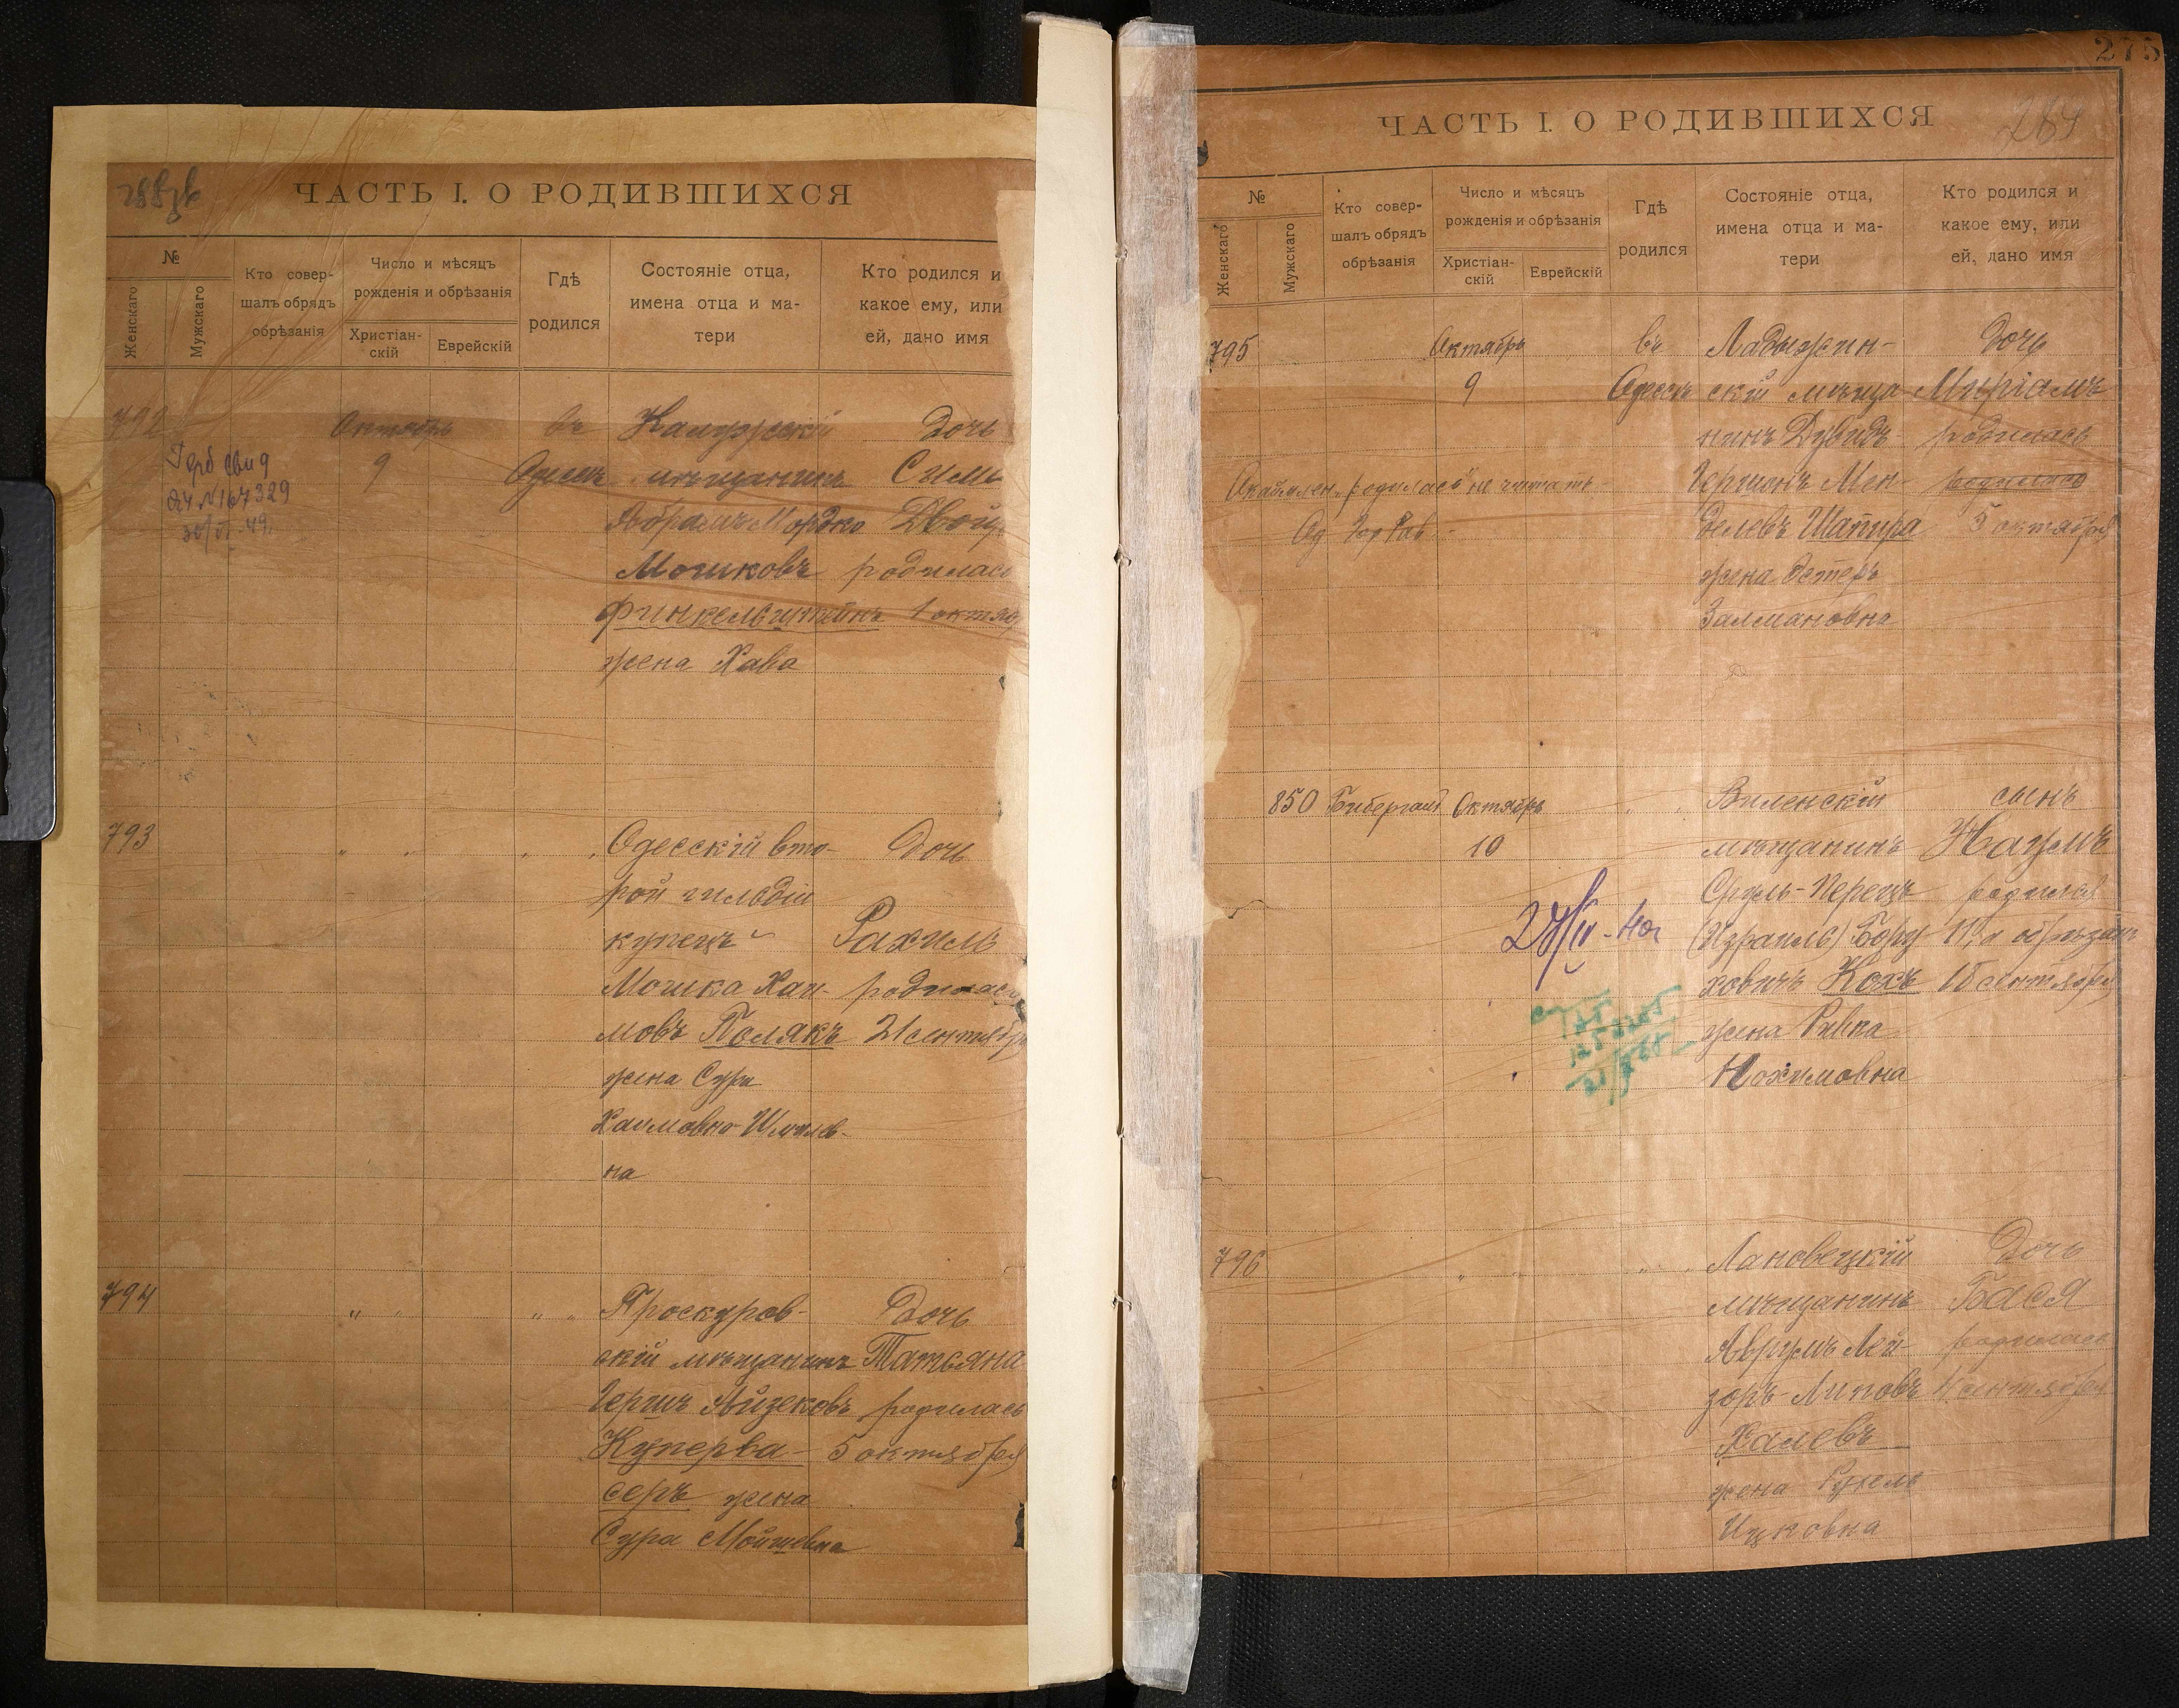 ЧАСТЬ I. О РОДИВШИХСЯ
№
Женскаго
Мужскаго
Кто совер-
шалъ обрядъ
обрѣзанія
Число и мѣсяцъ
рожденія и обрѣзанія
Христіан-
скій
Еврейскій
Гдѣ
родился
Состояніе отца,
имена отца и ма-
тери
Кто родился и
какое ему, или
ей, дано имя
792
Октябрь
9
въ
Одессѣ
Калужскій
мѣщанинъ
Абрамъ Мордко
Мошковъ
Финкельштейнъ
жена Хава
Дочь
Сима
родилась
1
№ 167329
793
" "
" "
Одесскій вто-
рой гильдіи
купецъ
Мошка Хаи-
мовъ Полякъ
жена Сура
Хаимовна-Шмилев-
на
Дочь
Рахиль
родилась
21 сентября
794
" "
" "
Проскуров-
скій мѣщанинъ
Гершъ Айзековъ
Куперва-
серъ жена
Сура Мойшевна
Дочь
Татьяна
родилась
5 октября
275
ЧАСТЬ I. О РОДИВШИХСЯ
264
№
Женскаго
Мужскаго
Кто совер-
шалъ обрядъ
обрѣзанія
Число и мѣсяцъ
рожденія и обрѣзанія
Христіан-
скій
Еврейскій
Гдѣ
родился
Состояніе отца,
имена отца и ма-
тери
Кто родился и
какое ему, или
ей, дано имя
795
Октябрь
9
въ
Одессѣ
Ладыжин-
скій мѣща-
нинъ Дувидъ
Гершонъ Мен-
делевъ Шапира
жена Эстеръ
Залмановна
Дочь
Миріамъ
родилась
родилась
5 октября
"родилась" не читать
Од Гор Рав
850
Октябрь
10
" "
Виленскій
мѣщанинъ
Сруль-Перецъ
(Израиль) Бору-
ховичъ Кохъ
жена Ривка
Нохимовна
сынъ
Наумъ
родился
11, а обрѣзанъ
18 сентября
796
" "
" "
Лановецкій
мѣщанинъ
Аврумъ Лей-
зоръ Липовъ
Халевъ
жена Рухель
Ицковна
Дочь
Бася
родилась
сентября